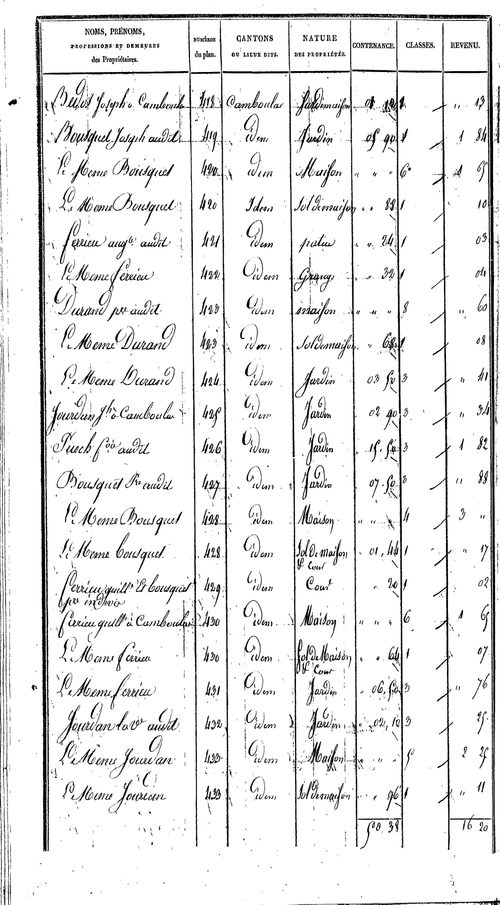 NOMS, PRÉNOMS, PROFESSIONS ET DEMEURES des Propriétaires. NUMÉROS du plan. CANTONS OU LIEUX DITS. NATURE DES PROPRIÉTÉS. CONTENANCE. CLASSES. REVENU.
Joseph à Camboula 418 Camboulas Sol de maison 01 1 " 13
Bousquet Joseph audit 419 idem Jardin 05 90 1 1 84
Le Meme Bousquet 420 idem Maison " " " 6e
Le Meme Bousquet 420 Idem Sol de maison " " 88 1 " 10
ferrieu augte audit 421 idem patus " 24 1 " 03
Le Meme ferrieu 422 idem Grange " 32 1 " 04
Durand pre audit 423 idem maison " " " 8 " 60
Le Meme Durand 423 idem Sol de maison " 68 1 " 08
Le Meme Durand 424 idem Jardin 03 50 3 " 41
Jourdan Jh à Camboulas 425 idem Jardin 02 90 3 " 34
Puech fois audit 426 idem Jardin 15 50 3 1 82
Bousquet audit 427 idem Jardin 07 50 3 " 88
Le Meme Bousquet 428 idem Maison " " " 4 3 "
Le Meme bousquet 428 idem Sol de maison & Cour 01 44 1 " 17
ferrieu guille et bousquet pr indivis 429 idem Cour " 20 1 " 02
ferrieu guille à Camboulas 430 idem Maison " " " 6 1 65
Le Meme ferrieu 430 idem Sol de Maison & Cour " 64 1 " 07
Le Meme ferrieu 431 idem Jardin 06 50 3 " 76
Jourdan la ve audit 432 idem Jardin 02 10 3 " 25
Le Meme Jourdan 433 idem Maison " " " 5e 2 25
Le Meme Jourdan 433 idem Sol de maison " 96 1 " 11
50 38 16 20